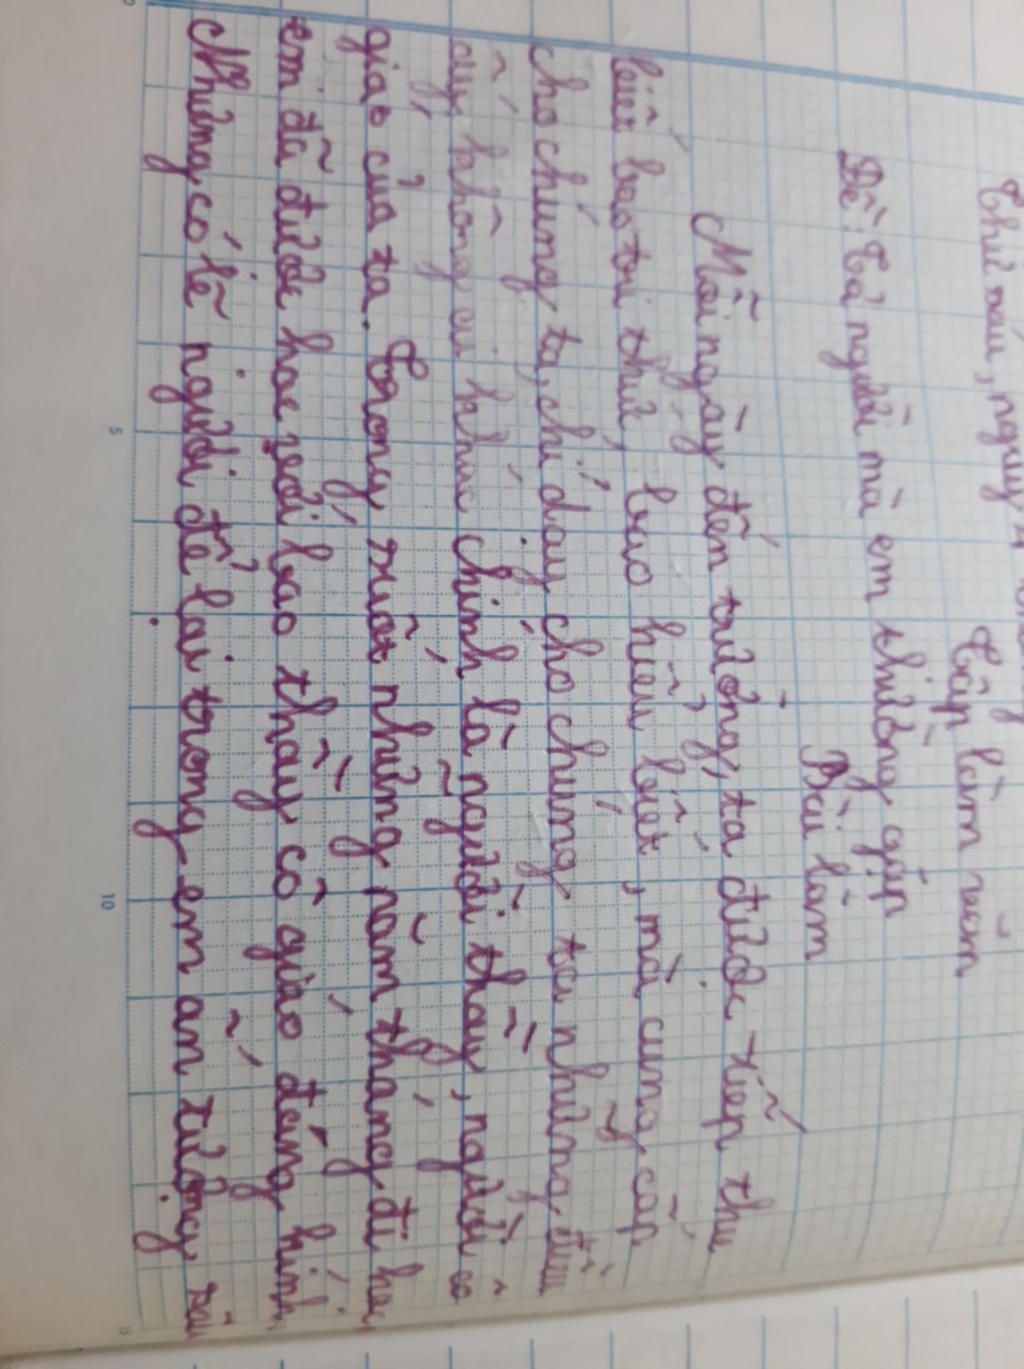 Thứ sáu, ngày 4
Tập làm văm
Đề: Tả người mà em thường gặp
Bài làm
Mỗi ngày đến trường, ta được tiếp thu
biết bao tri thức, bao hiểu biết, mà cung cấp
cho chúng ta, chỉ dạy cho chúng ta những điều
ấy, không ai khác chính là người thầy, người cô
giáo của ta. Trong suốt những năm tháng đi học,
em đã được học với bao thầy cô giáo đáng kính
Nhưng có lẽ người để lại trong em ấn tượng sâu